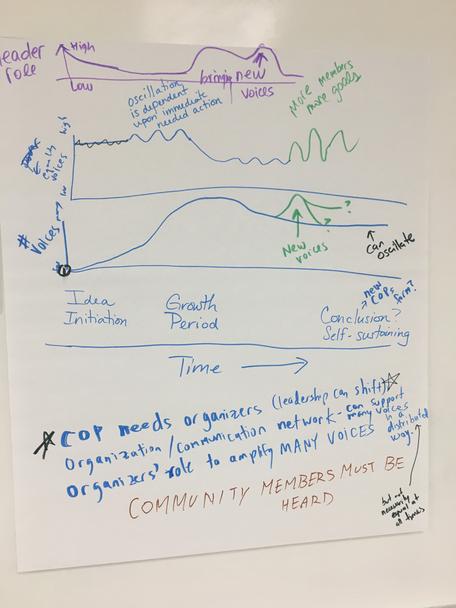 Leader
role
High
Low
bringing new
voices
oscillation
is dependent
upon immediate
needed action
More members
more goods
high
low
voices
# voices
low
New
voices
?
?
can
oscillate
Idea
Initiation
Growth
Period
new
COPs
form?
Conclusion?
Self-sustaining
Time
COP needs organizers (leadership can shift)
Organization/communication network - can support
many voices
in a
distributed
way.
Organizers' role to amplify MANY VOICES
COMMUNITY MEMBERS MUST BE
HEARD
but not
necessarily
equal at
all times